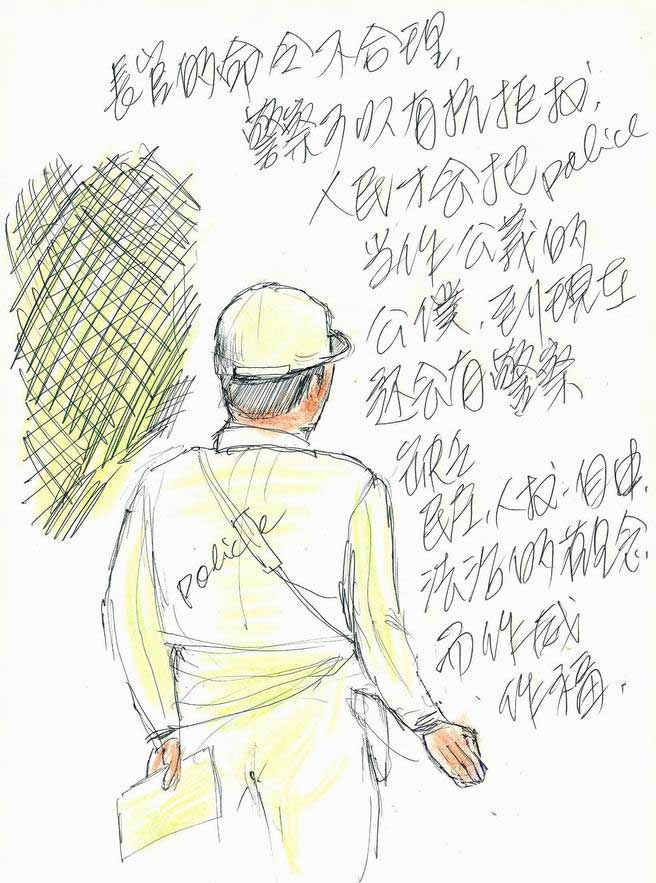 長官的命令不合理,
警察可以有抗拒权,
人民才会把police
当作公義的
公僕,到現在
还会有警察
民主,人权,自由,
法治的观念,
而作威
作福.
police